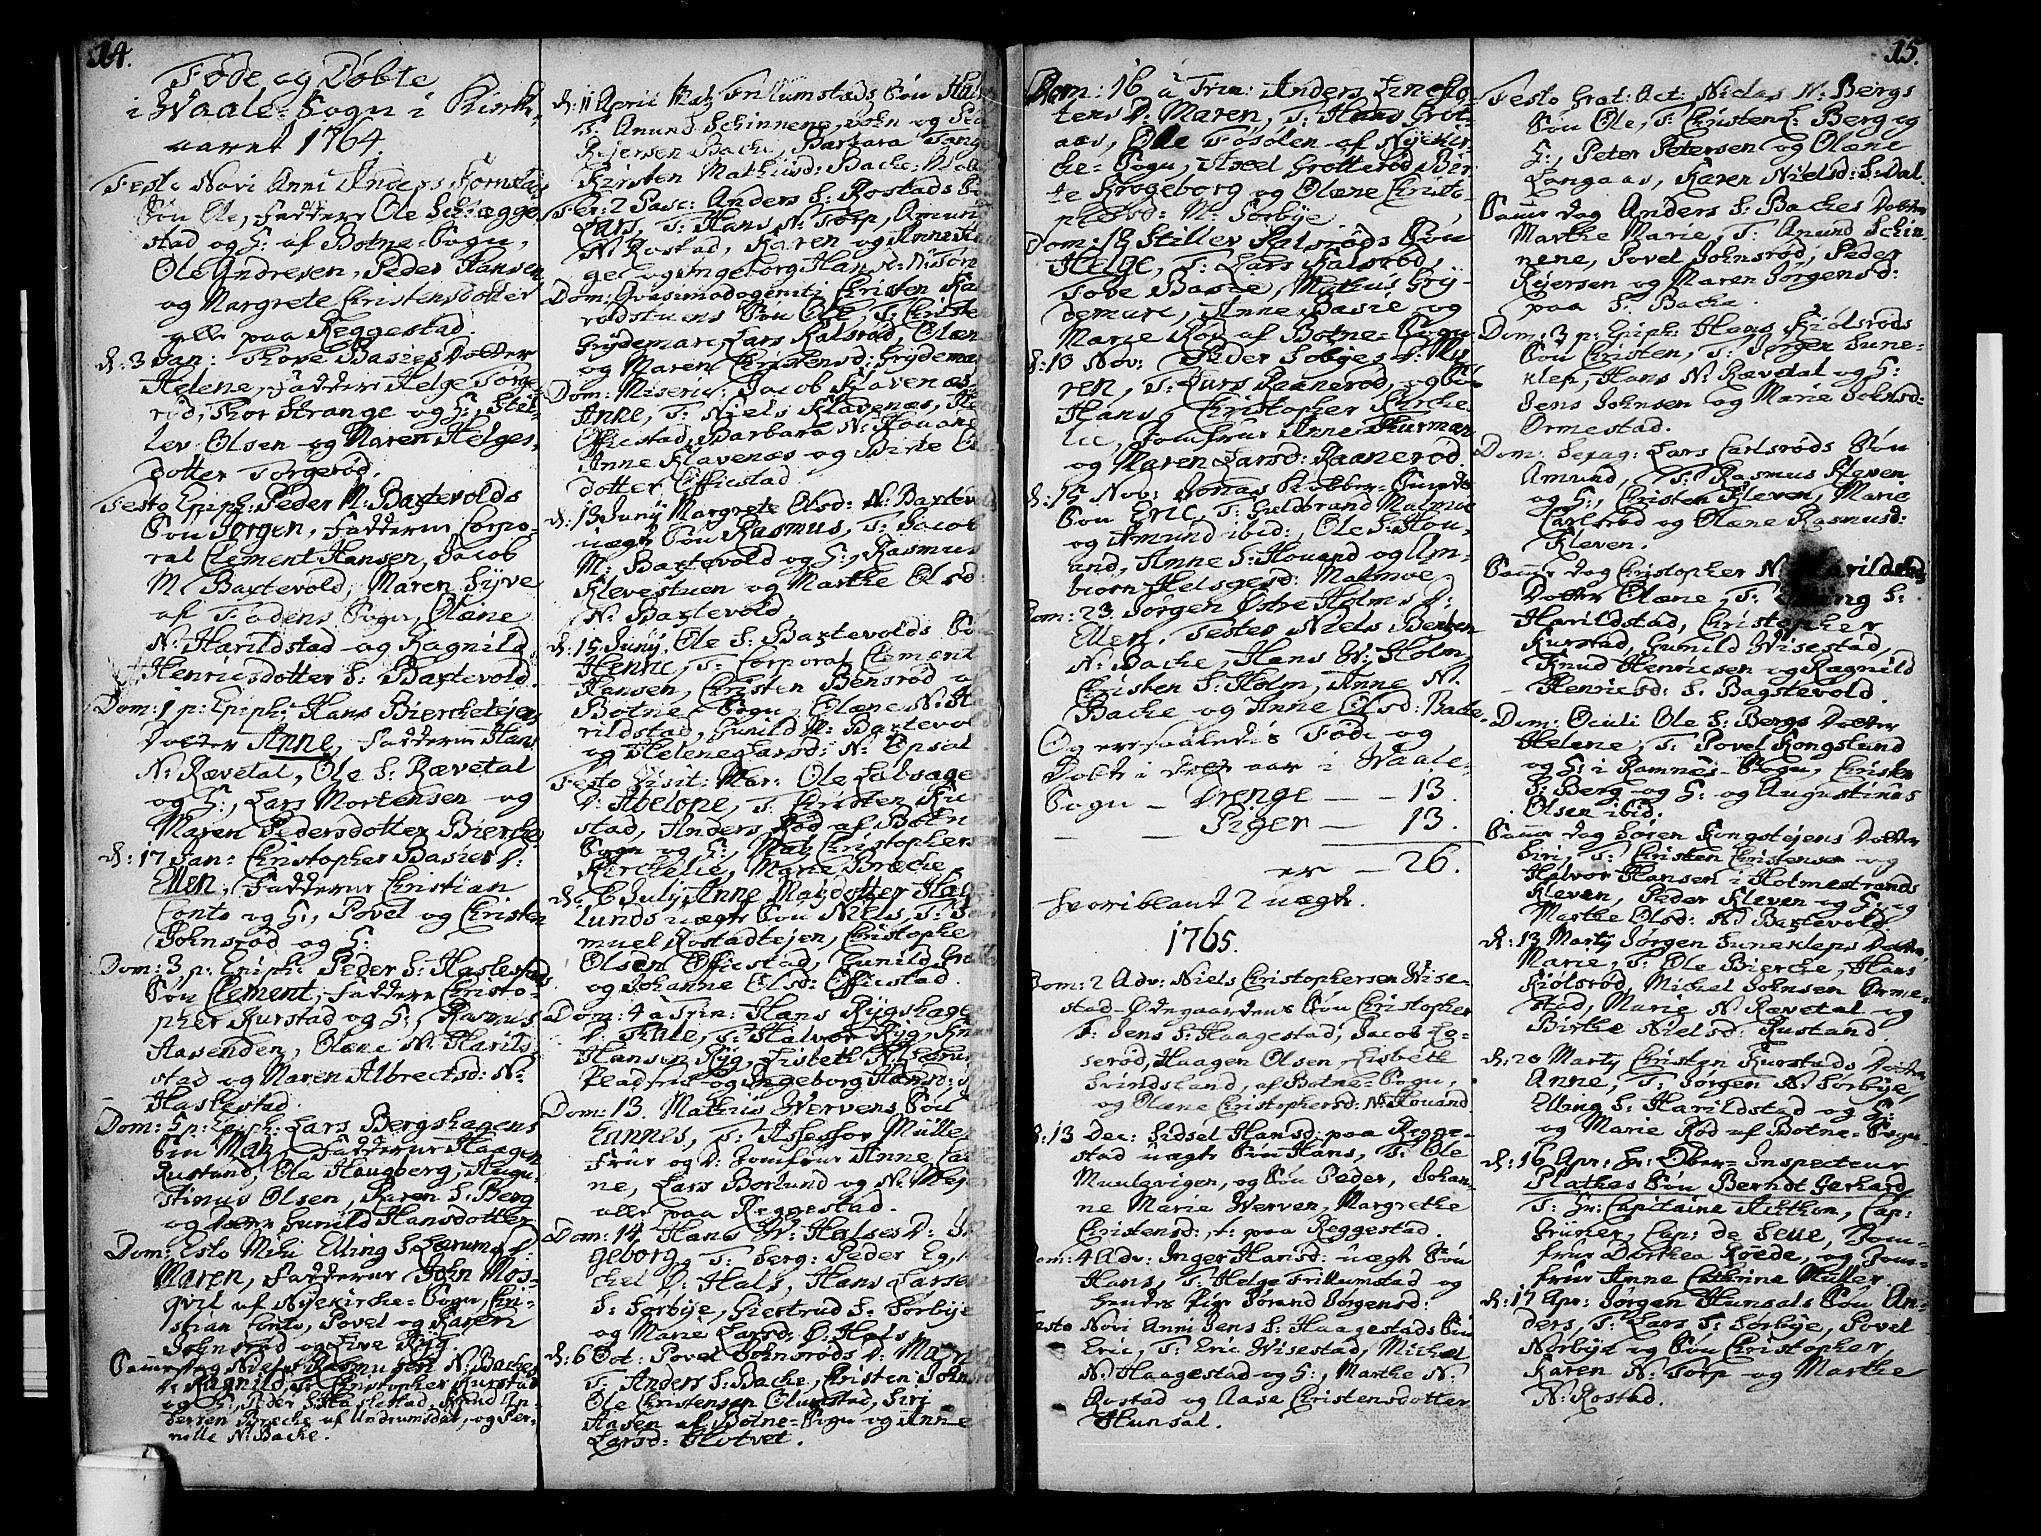 14.
Føde og Døbte
i Waale-Sogn i Kirke
aaret 1764
Festo Novi Anni Anders
Søn Ole, Faddere Ole Schiegge
stad og H: af Botne-Sogn,
Ole Andresen, Peder Hansen
og Margrete Christensdotter
alle paa Reggestad.
d: 3 Jan: Thove Basies Dotter
Helene, Faddere Helge Torge
rød, Thor Strange og H:, Stel-
lev Olsen og Maren Helges
dotter Torgerød.
Festo Epiph: Peder M: Baxtevolds
Søn Jørgen, Fadderne Corpo-
ral Clement Hansen, Jacob
M Baxtevold, Maren Syve
af Fadens Sogn, Olæne
N: Harildstad og Ragnild
Henricsdotter S: Baxtevold.
Dom: 1 p: Epiph: Hans Bierchetejen
Dotter Anne, Fadderne Hans
N: Rævetal, Ole S: Rævetal
og H:, Lars Mortensen og
Maren Pedersdotter Bierche
d: 17 Jan: Christopher Basies D:
Ellen, Fadderne Christian
Conto og H:, Povel og Christen
Johnsrød og H:
Dom: 3 p: Epiph: Peder S: Haslestad
Søn Clement, Faddere Christo-
pher Kurstad og H:, Rasmus
Aasenden, Olæne N: Harild
stad og Maren Albrectsd: N:
Haslestad.
Dom: 5 p: Epiph: Lars Bergshagens
Søn Matz, Fadderne Haagen
Rustand, Ole Haugberg, Augu-
stinus Olsen, Karen S: Berg
og Gunild Hansdotter
Dom: Esto Mihi Elling S: D:
Maren, Fadderne John Mos-
qvil af Nykirche-Sogn, Chri-
stian Conto, Povel og Karen
Johnsrød og Live Ryg.
Samme dag Niels Rasmussens N: Baches
D: Ragnild, T: Christopher Kurstad
og H:, Peder S: Haslestad, Knud An-
dersen Breche af Undrumsdal, og Per-
nille N: Bache.
d: 11 April Matz Frillumstads Søn
T: Anund Schinnene, John og
Rejersen Bache, Barbara
Kirsten Mathiasd: Bache:
Fer: 2 Pasc: Anders S: Rostads
Lars, T: Hans N: Torp, Amun
N: Rostad, Karen og Anne
ge og Ingeborg Hansd:
Dom: Qvasimodogeniti Christen
rødstuens Søn Ole, T: Christen
Grydemare Lars Kalsrød, Olæne
og Maren Christensd: Grydemare
Dom: Miseric: Jacob Klavenæs
Anne, T: Niels Klavenes,
Efficstad, Barbara N: Houand
Anne Klavenæs og Birte Ols
dotter Efficstad.
d: 13 Junij Margrete Olsd: N: Baxtevold
uægte Søn Rasmus, T: Jacob
M: Baxtevold og H:, Rasmus
Klevestuen og Marthe Olsd:
N: Baxtevold
d: 15 Junij, Ole S: Baxtevolds Søn
Henric, T: Corporal Clement
Hansen, Christen Bensrød
Botne-Sogn, Olæne N:
rildstad, Gunild M: Baxtevold
og Helene Larsd: N: Epsal
Festo Visit: Mar: Ole
D: Abelone, T: Christen Kur
stad, Anders Rød af Botne
Sogn og H:, Matz Christophersen
Kirchelie, Marie Breche
d: 8 Julij, Anne Matzdotter
lunds uægte Søn Niels, T:
muel Rostadtejen, Christopher
Olsen Efficstad, Gunild
og Johanne Olsd: Efficstad.
Dom: 4 a Trin: Hans Rygshage
D: T: Halvor Ryg, Knud
Hansen Ryg, Lisbeth
og Ingeborg Hansd:
Dom: 13. Mathis Wervens Søn
T: Assessor Müllers
Frue og D: Jomfrue Anne
ne, Lars Berlund og N: Meje
alle paa Reggestad.
Dom: 14 Hans W: Halses D: In
geborg, T: Serg: Peder Eg,
chel Ø: Hals, Hans Larsen
S: Sørbye, Giestrud S: Sørbye
og Marie Larsd: Ø: Hals
d: 6 Oct: Povel Johnsrøds D:
T: Anders S: Bache, Christen Johns
Ole Christensen Olumstad, Siri
Aasen af Botne-Sogn og Anne
Larsd: Holtvet.
Dom: 16 a Trin: Anders
tens D: Maren, T: Knud Grot-
aas, Ole Tøsølen af Nykir-
che-Sogn, Axel Grotterød, Bir-
te Krogeborg og Olæne Christo-
phersd: N: Sørbye
Dom: 18 Stiller Kalsrøds Søn
Helge, T: Lars Kalsrød,
Tove Basie, Mathis Gry-
demare, Anne Basie og
Marie Rød af Botne-Sogn
d: 13 Nov: Peder Solges D:
ren, T: Lars Raanerød, og Søn
Hans, Christopher Kirche-
lie, Jomfrue Anne Thurman
og Maren Larsd: Raanerød
d: 15 Nov: Jonas
Søn Eric, T: Guldbrand Malmoe
og Amund ibid:, Ole S: Hou-
and, Anne S: Houand og Am-
biorn Helsgesd: Malmoe
Dom: 23. Jørgen Østre Holms D:
Ellen. Testes Niels Bentsen
N: Bache, Hans W: Holm,
Christen S: Holm, Anne N:
Bache og Anne Olsd: Bache
Og ere saaledis Føde og
Døbte i dette aar i Waale-
Sogn - Drenge - - 13.
- - Piger - 13.
er - 26.
hvoriblant 2 uægte.
1765.
Dom: 2 Adv: Niels Christophersen Wise-
stad-Ødegaardens Søn Christopher
T: Jens S: Haagestad, Jacob Lo-
serød, Haagen Olsen, Lisbeth
Svindsland, af Botne-Sogn,
og Olæne Christophersd: N: Houand.
d: 13 Dec: Sidsel Hansd: paa Regge-
stad uægte Søn Hans, T: Ole
Muulevigen, og Søn Peder, Johan-
ne Marie Werven, Margrethe
Christensd: f: paa Reggestad.
Dom: 4 Adv: Inger Hansd: uægte Søn
Hans, T: Helge Frillumstad og
hendes Pige Jørand Jørgensd:
Festo Novi Anni Jens S: Haagestads Søn
Eric, T: Eric Wisestad, Michæl
N: Haagestad og H:, Marthe N:
Rostad og Aase Christensdotter
Hunsal.
15.
Festo Grat: Act: Niclas N: Bergs
Søn Ole, T: Christen L: Berg og
H:, Peter Petersen og Olæne
Langaas, Karen Nielsd: S: Dal.
Samme dag Anders S: Baches Dotter
Marthe Marie, T: Anund Schin-
nene, Povel Johnsrød, Peder
Rejersen og Maren Jørgensd:
paa S: Bache.
Dom: 3 p: Epiph: Hans Kiølsrøds
Søn Christen, T: Jørgen Sune-
klep, Hans N: Rævetal og H:
Jens Johnsen og Marie Johnsd:
Ormestad.
Dom: Sexag: Lars Carlsrøds Søn
Amund, T: Rasmus Kleven
og H:, Christen Kleven, Marie
Carlsrød og Olæne Rasmusd:
Kleven.
Samme dag Christopher N: Harildstads
Dotter Olæne, T: Elling S:
Harildstad, Christopher
Kurstad, Gunild Wisestad,
Knud Henricsen og Ragnild
Henricsd: S: Bagstevold.
Dom: Oculi Ole S: Bergs Dotter
Helene, T: Povel Kongslund
og H: i Ramnes-Sogn, Christen
S: Berg og H: og Augustinus
Olsen ibid.
Samme dag Søren Kongstejens Dotter
Siri, T: Christen Christensen og
Halvor Hansen i Holmestrand
Kleven, Peder Kleven og H: og
Marthe Olsd: Baxtevold.
d: 13 Martij Jørgen Sunekleps Dotter
Marie, T: Ole Bierche, Hans
Kiølsrød, Michel Johnsen Orme-
stad, Marie N: Rævetal og
Birthe Nielsd: Rustand.
d: 20 Martij Christen Kurstads Dotter
Anne, T: Jørgen N: Sørbye,
Elling S: Harildstad og H:
og Marie Rød af Botne-Sogn
d: 16 Apr: Hr: Ober-Inspecteur
Plathes Søn Berndt Gerhard
T: Hr: Capitaine Cap:
Grüner, Cap: de Seue, Jom-
frue Dorthea Røede, og Jom-
frue Anne Cathrine Müller.
d: 17 Apr: Jørgen Hunsals Søn An-
ders, T: Lars S: Sørbye, Povel
Nørbye og Søn Christopher,
Karen N: Torp og Marthe
N: Rostad.